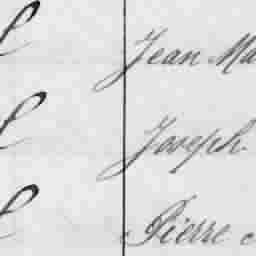 Jean Ma
Joseph
Pierre